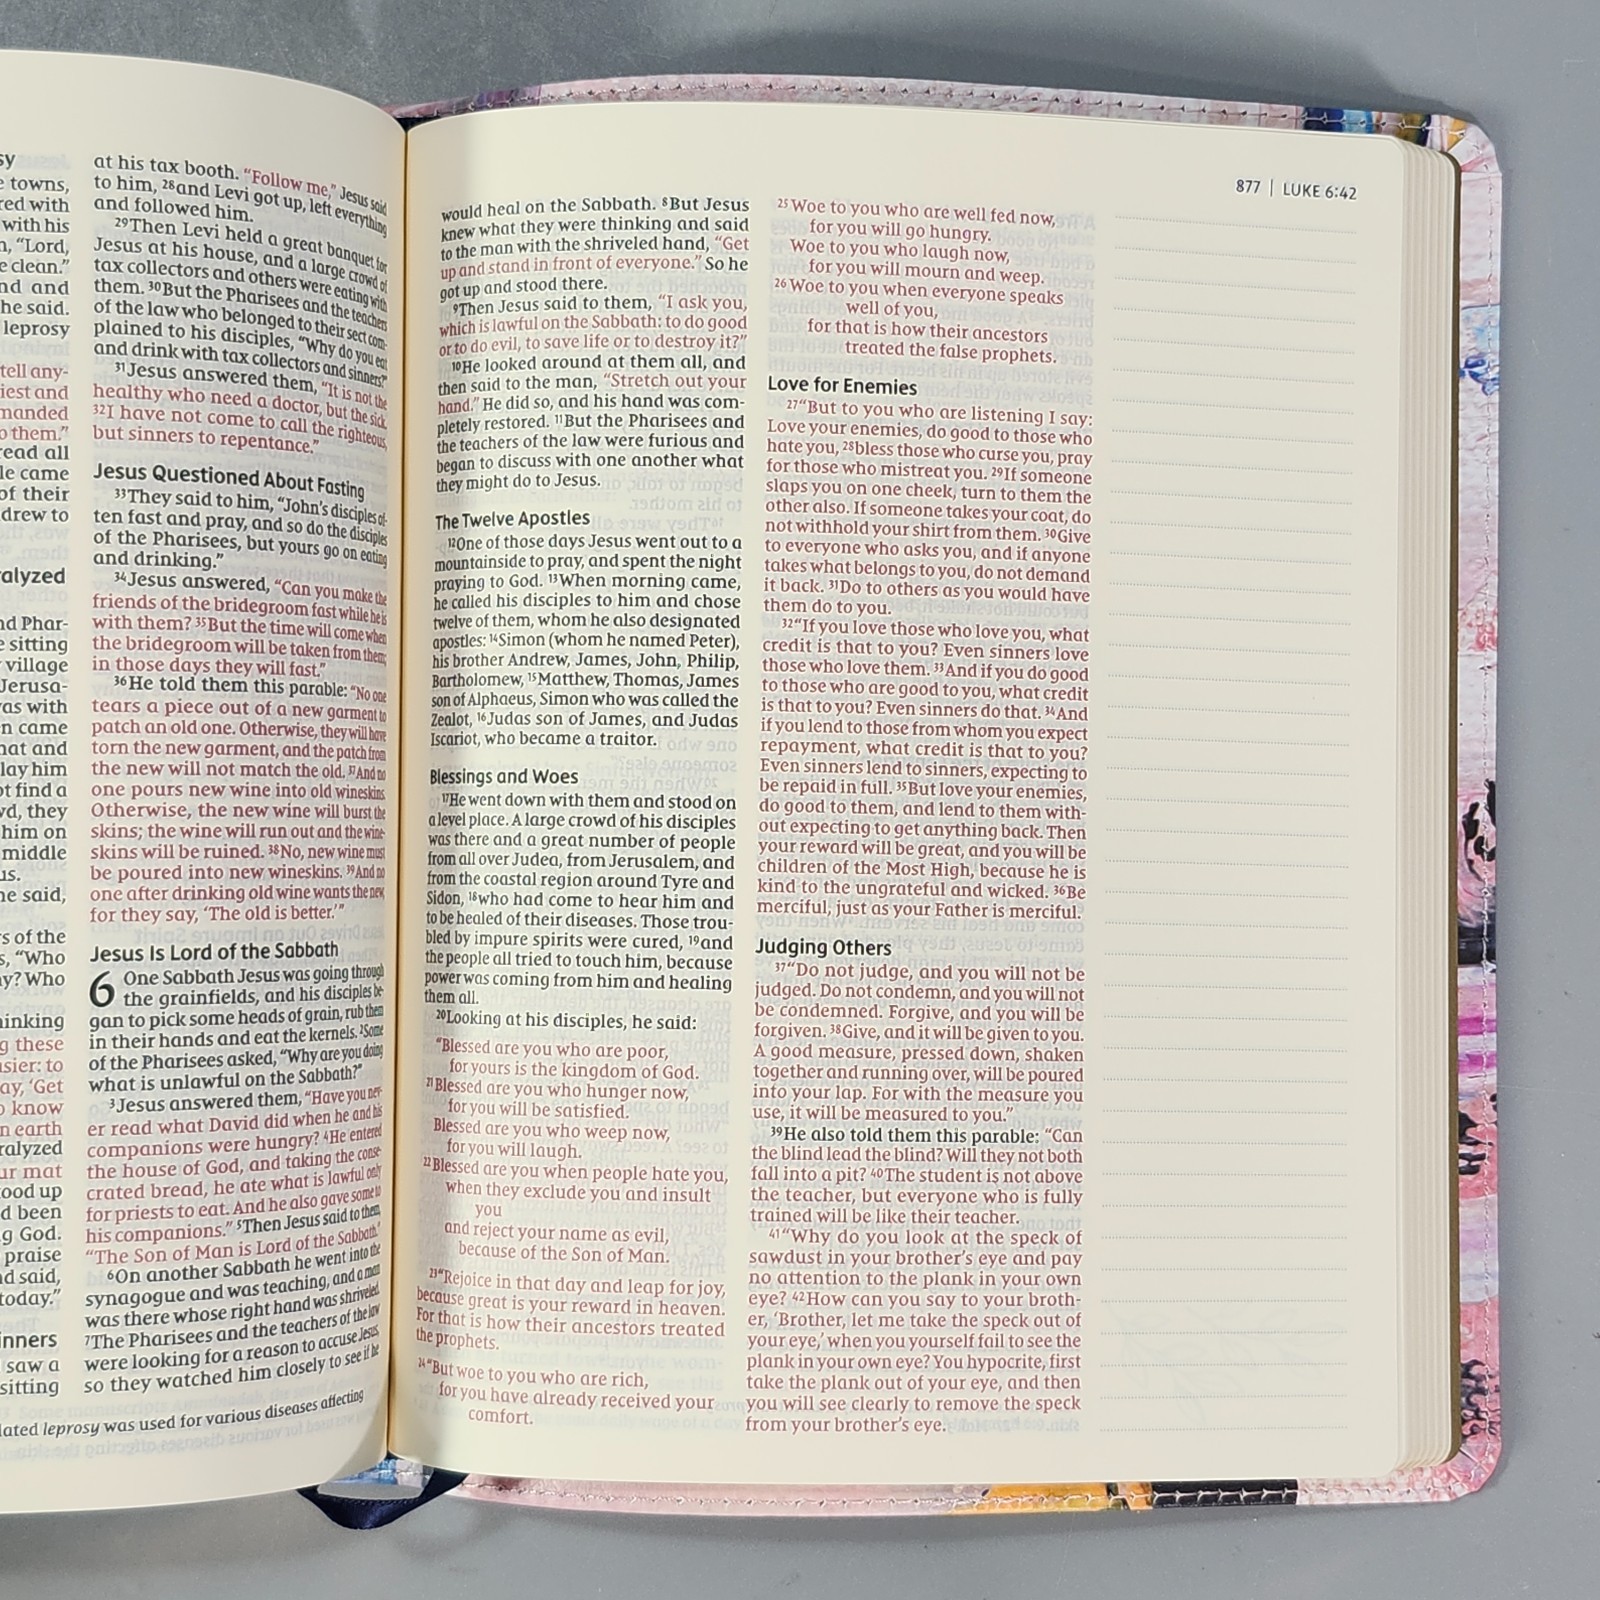 sy
e towns,
red with
with his
n, “Lord,
e clean.”
nd and
he said.
leprosy
tell any-
iest and
manded
o them.”
read all
le came
of their
drew to
ralyzed
nd Phar-
e sitting
village
Jerusa-
as with
n came
nat and
lay him
ot find a
wd, they
him on
middle
us.
he said,
rs of the
s, “Who
y? Who
inking
g these
sier: to
ay, ‘Get
o know
n earth
ralyzed
ur mat
ood up
d been
g God.
praise
nd said,
today.”
inners
saw a
sitting
at his tax booth. “Follow me,” Jesus said
to him, 28and Levi got up, left everything
and followed him.
29Then Levi held a great banquet for
Jesus at his house, and a large crowd of
tax collectors and others were eating with
them. 30But the Pharisees and the teachers
of the law who belonged to their sect com-
plained to his disciples, “Why do you eat
and drink with tax collectors and sinners?”
31Jesus answered them, “It is not the
healthy who need a doctor, but the sick.
32I have not come to call the righteous,
but sinners to repentance.”
Jesus Questioned About Fasting
33They said to him, “John’s disciples of-
ten fast and pray, and so do the disciples
of the Pharisees, but yours go on eating
and drinking.”
34Jesus answered, “Can you make the
friends of the bridegroom fast while he is
with them? 35But the time will come when
the bridegroom will be taken from them;
in those days they will fast.”
36He told them this parable: “No one
tears a piece out of a new garment to
patch an old one. Otherwise, they will have
torn the new garment, and the patch from
the new will not match the old. 37And no
one pours new wine into old wineskins.
Otherwise, the new wine will burst the
skins; the wine will run out and the wine-
skins will be ruined. 38No, new wine must
be poured into new wineskins. 39And no
one after drinking old wine wants the new,
for they say, ‘The old is better.’”
Jesus Is Lord of the Sabbath
6 One Sabbath Jesus was going through
the grainfields, and his disciples be-
gan to pick some heads of grain, rub them
in their hands and eat the kernels. 2Some
of the Pharisees asked, “Why are you doing
what is unlawful on the Sabbath?”
3Jesus answered them, “Have you nev-
er read what David did when he and his
companions were hungry? 4He entered
the house of God, and taking the conse-
crated bread, he ate what is lawful only
for priests to eat. And he also gave some to
his companions.” 5Then Jesus said to them,
“The Son of Man is Lord of the Sabbath.”
6On another Sabbath he went into the
synagogue and was teaching, and a man
was there whose right hand was shriveled.
7The Pharisees and the teachers of the law
were looking for a reason to accuse Jesus,
so they watched him closely to see if he
lated leprosy was used for various diseases affecting
877 | LUKE 6:42
would heal on the Sabbath. 8But Jesus
knew what they were thinking and said
to the man with the shriveled hand, “Get
up and stand in front of everyone.” So he
got up and stood there.
9Then Jesus said to them, “I ask you,
which is lawful on the Sabbath: to do good
or to do evil, to save life or to destroy it?”
10He looked around at them all, and
then said to the man, “Stretch out your
hand.” He did so, and his hand was com-
pletely restored. 11But the Pharisees and
the teachers of the law were furious and
began to discuss with one another what
they might do to Jesus.
The Twelve Apostles
12One of those days Jesus went out to a
mountainside to pray, and spent the night
praying to God. 13When morning came,
he called his disciples to him and chose
twelve of them, whom he also designated
apostles: 14Simon (whom he named Peter),
his brother Andrew, James, John, Philip,
Bartholomew, 15Matthew, Thomas, James
son of Alphaeus, Simon who was called the
Zealot, 16Judas son of James, and Judas
Iscariot, who became a traitor.
Blessings and Woes
17He went down with them and stood on
a level place. A large crowd of his disciples
was there and a great number of people
from all over Judea, from Jerusalem, and
from the coastal region around Tyre and
Sidon, 18who had come to hear him and
to be healed of their diseases. Those trou-
bled by impure spirits were cured, 19and
the people all tried to touch him, because
power was coming from him and healing
them all.
20Looking at his disciples, he said:
“Blessed are you who are poor,
for yours is the kingdom of God.
21Blessed are you who hunger now,
for you will be satisfied.
Blessed are you who weep now,
for you will laugh.
22Blessed are you when people hate you,
when they exclude you and insult
you
and reject your name as evil,
because of the Son of Man.
23“Rejoice in that day and leap for joy,
because great is your reward in heaven.
For that is how their ancestors treated
the prophets.
24“But woe to you who are rich,
for you have already received your
comfort.
25Woe to you who are well fed now,
for you will go hungry.
Woe to you who laugh now,
for you will mourn and weep.
26Woe to you when everyone speaks
well of you,
for that is how their ancestors
treated the false prophets.
Love for Enemies
27“But to you who are listening I say:
Love your enemies, do good to those who
hate you, 28bless those who curse you, pray
for those who mistreat you. 29If someone
slaps you on one cheek, turn to them the
other also. If someone takes your coat, do
not withhold your shirt from them. 30Give
to everyone who asks you, and if anyone
takes what belongs to you, do not demand
it back. 31Do to others as you would have
them do to you.
32“If you love those who love you, what
credit is that to you? Even sinners love
those who love them. 33And if you do good
to those who are good to you, what credit
is that to you? Even sinners do that. 34And
if you lend to those from whom you expect
repayment, what credit is that to you?
Even sinners lend to sinners, expecting to
be repaid in full. 35But love your enemies,
do good to them, and lend to them with-
out expecting to get anything back. Then
your reward will be great, and you will be
children of the Most High, because he is
kind to the ungrateful and wicked. 36Be
merciful, just as your Father is merciful.
Judging Others
37“Do not judge, and you will not be
judged. Do not condemn, and you will not
be condemned. Forgive, and you will be
forgiven. 38Give, and it will be given to you.
A good measure, pressed down, shaken
together and running over, will be poured
into your lap. For with the measure you
use, it will be measured to you.”
39He also told them this parable: “Can
the blind lead the blind? Will they not both
fall into a pit? 40The student is not above
the teacher, but everyone who is fully
trained will be like their teacher.
41“Why do you look at the speck of
sawdust in your brother’s eye and pay
no attention to the plank in your own
eye? 42How can you say to your broth-
er, ‘Brother, let me take the speck out of
your eye,’ when you yourself fail to see the
plank in your own eye? You hypocrite, first
take the plank out of your eye, and then
you will see clearly to remove the speck
from your brother’s eye.